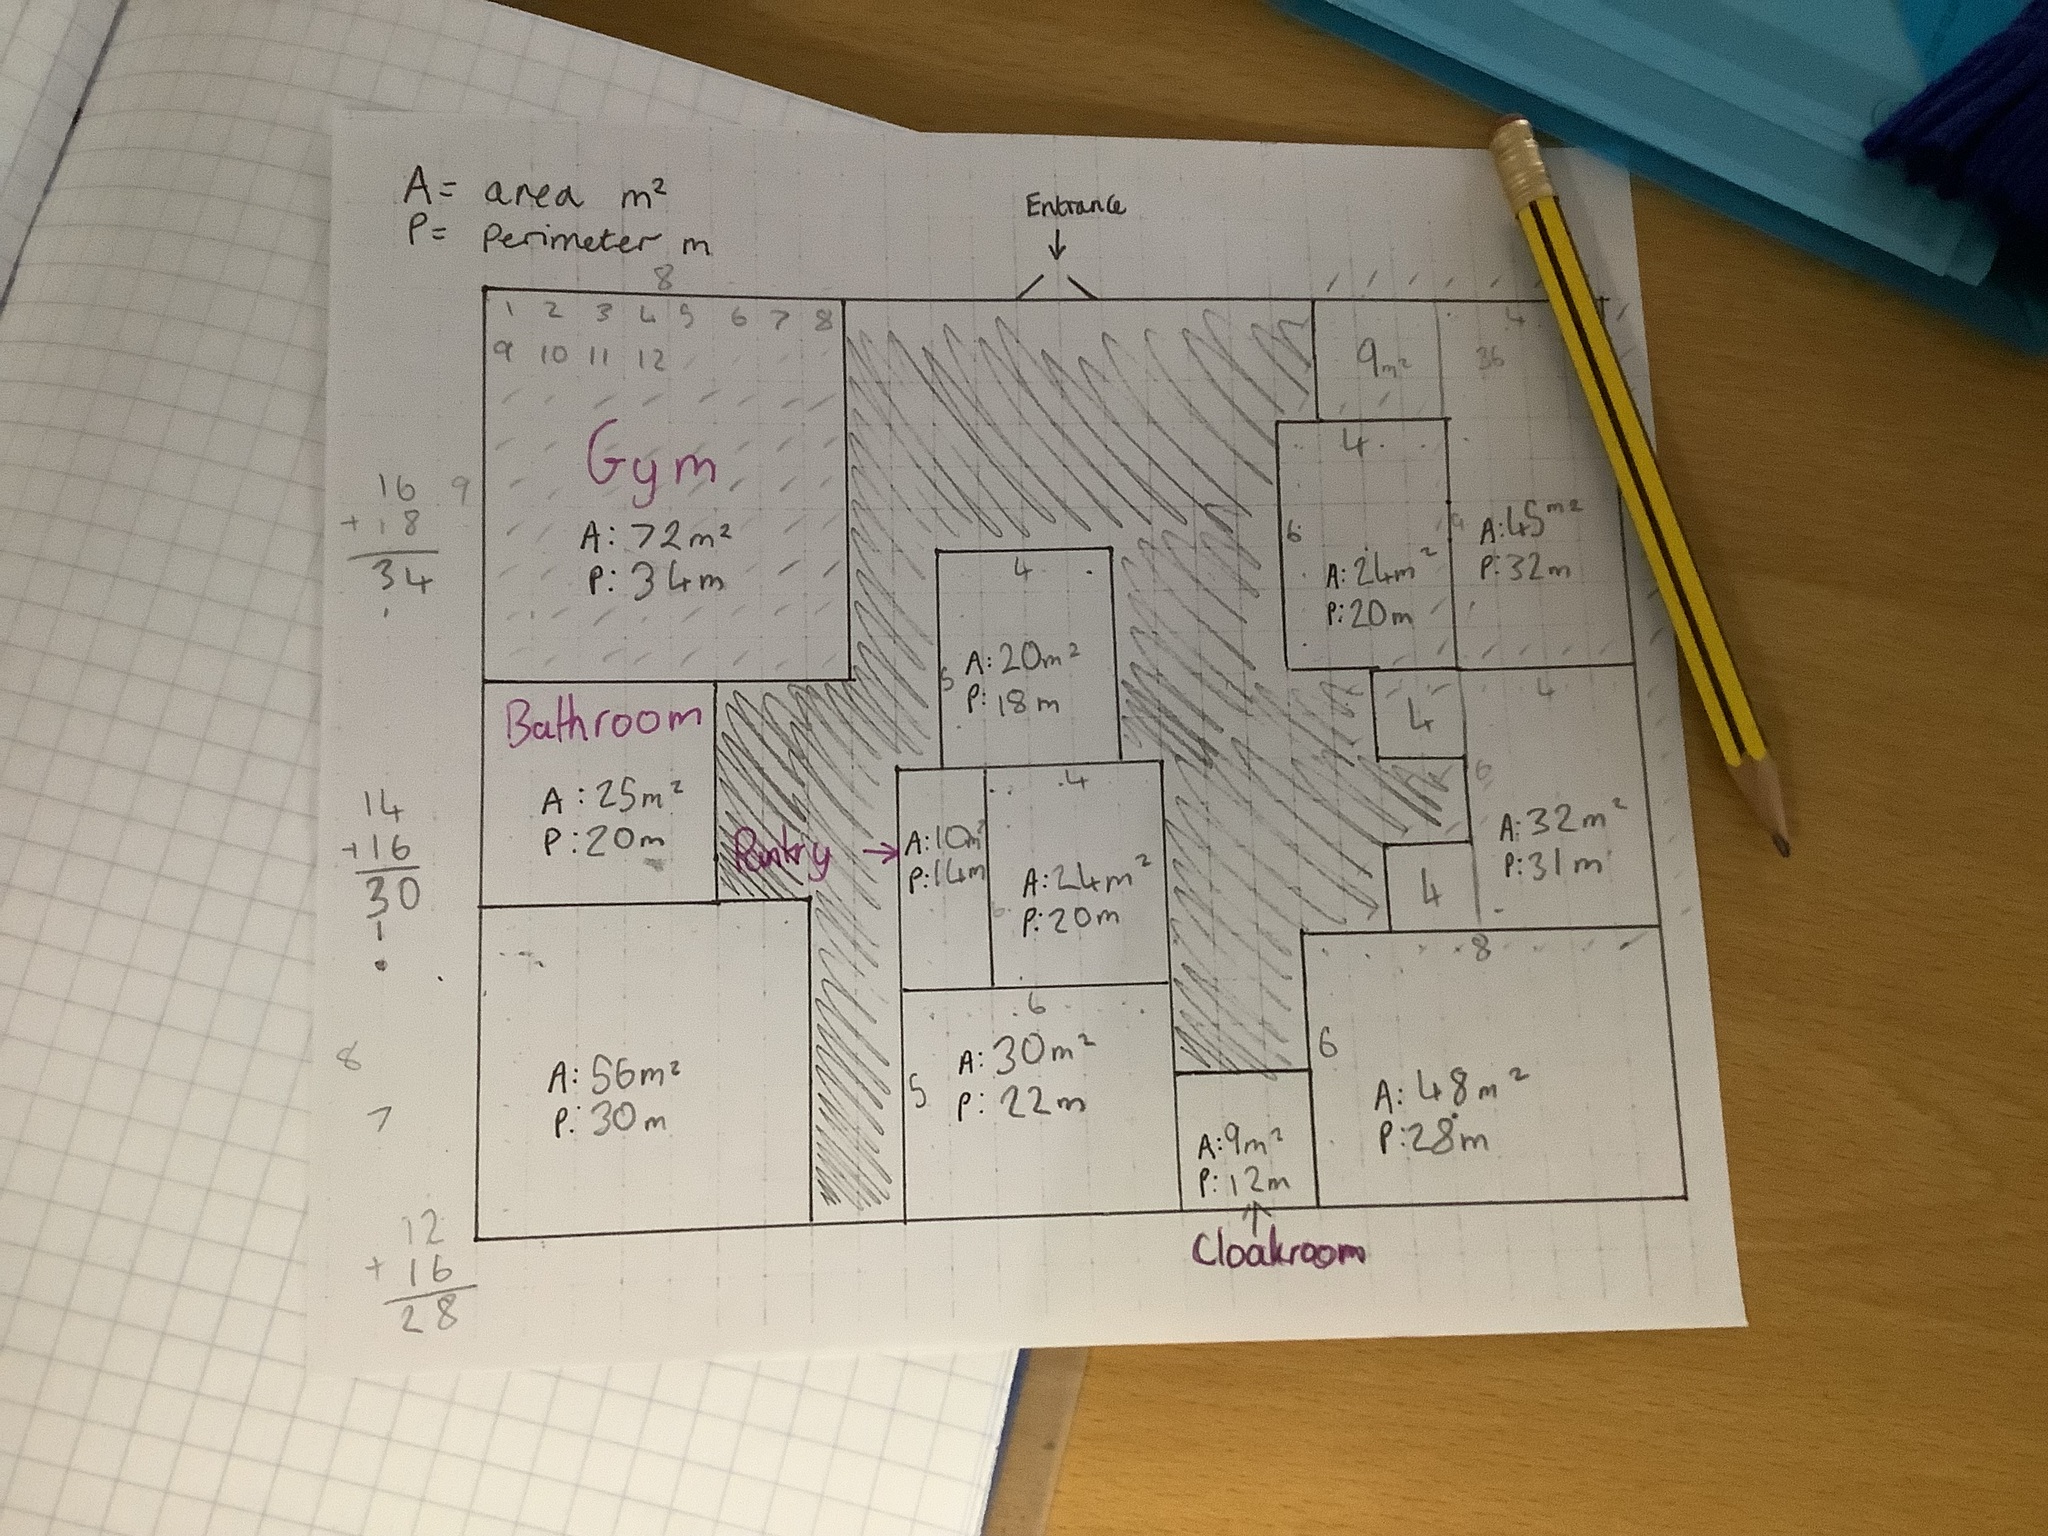 A= area m²
P= perimeter m
Entrance
↓
8
1 2 3 4 5 6 7 8
9 10 11 12
Gym
A: 72m²
P: 34m
9
16
+18
34
9m²
4
36
4
6
A: 24m²
P: 20m
9
A: 45m²
P: 32m
4
5
A: 20m²
P: 18m
Bathroom
A: 25m²
P: 20m
Pantry →
A: 10m²
P: 14m
4
6
A: 24m²
P: 20m
4
4
6
A: 32m²
P: 31m
4
14
+16
30
8
7
A: 56m²
P: 30m
6
5
A: 30m²
P: 22m
8
6
A: 48m²
P: 28m
A: 9m²
P: 12m
↑
Cloakroom
12
+16
28